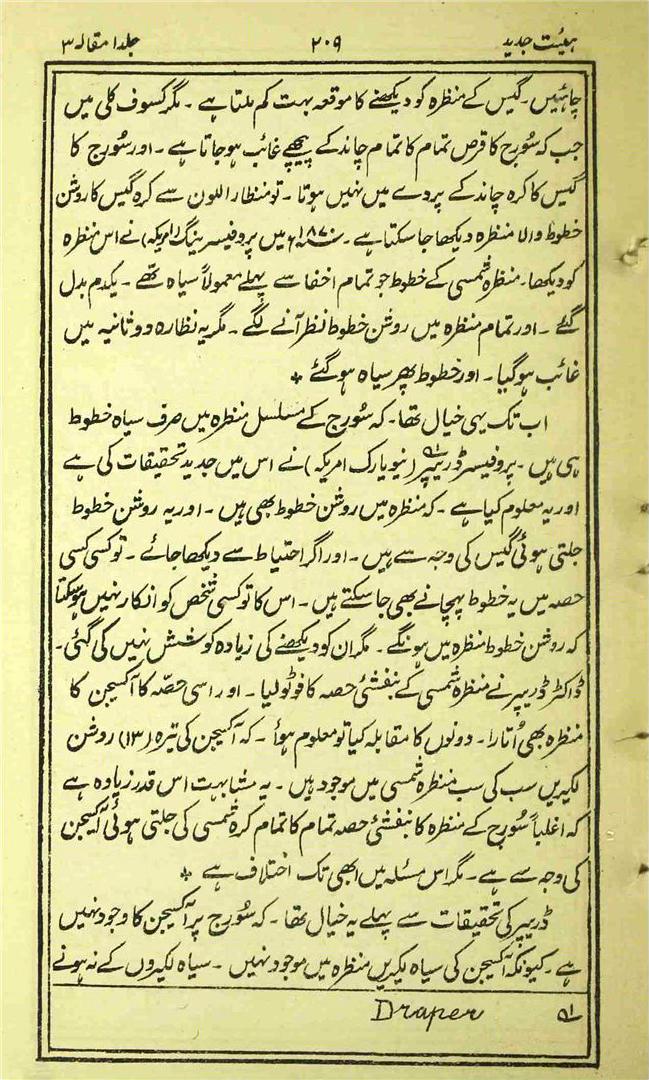 ہیئت جدید ۲۰۹ جلد ۱ مقالہ ۳
چاہئیں۔ گیس کے منظرہ کو دیکھنے کا موقعہ بہت کم ملتا ہے ۔ مگر کسوف کلی میں
جب کہ سُورج کا قرص تمام کا تمام چاند کے پیچھے غائب ہو جاتا ہے ۔ اور سُورج کا
گیس کا کرہ چاند کے پردے میں نہیں ہوتا ۔ تو منظار اللون سے کرہ گیس کا روشن
خطوط والا منظرہ دیکھا جا سکتا ہے ۔ ۱۸۷۰ء میں پروفیسر ینگ (امریکہ) نے اس منظرہ
کو دیکھا۔ منظرہ شمسی کے خطوط جو تمام اخفا سے پہلے معمولاً سیاہ تھے ۔ یکدم بدل
گئے ۔ اور تمام منظرہ میں روشن خطوط نظر آنے لگے ۔ مگر یہ نظارہ دو ثانیہ میں
غائب ہو گیا ۔ اور خطوط پھر سیاہ ہو گئے *
اب تک یہی خیال تھا۔ کہ سُورج کے مسلسل منظرہ میں صرف سیاہ خطوط
ہی ہیں ۔ پروفیسر ڈریپر ۱ (نیویارک امریکہ) نے اس میں جدید تحقیقات کی ہے
اور یہ معلوم کیا ہے ۔ کہ منظرہ میں روشن خطوط بھی ہیں ۔ اور یہ روشن خطوط
جلتی ہوئی گیس کی وجہ سے ہیں ۔ اور اگر احتیاط سے دیکھا جائے ۔ تو کسی کسی
حصہ میں یہ خطوط پہچانے بھی جا سکتے ہیں ۔ اس کا تو کسی شخص کو انکار نہیں ہو سکتا
کہ روشن خطوط منظرہ میں ہونگے ۔ مگر ان کو دیکھنے کی زیادہ کوشش نہیں کی گئی۔
ڈاکٹر ڈریپر نے منظرہ شمسی کے بنفشئی حصہ کا فوٹو لیا ۔ اور اسی حصّہ کا آکسیجن کا
منظرہ بھی اُتارا ۔ دونوں کا مقابلہ کیا تو معلوم ہوأ ۔ کہ آکسیجن کی تیرہ (۱۳) روشن
لکیریں سب کی سب منظرہ شمسی میں موجود ہیں ۔ یہ مشابہت اس قدر زیادہ ہے
کہ اغلباً سُورج کے منظرہ کا بنفشئی حصہ تمام کا تمام کرہ شمسی کی جلتی ہوئی آکسیجن
کی وجہ سے ہے ۔ مگر اس مسئلہ میں ابھی تک اختلاف ہے *
ڈریپر کی تحقیقات سے پہلے یہ خیال تھا ۔ کہ سُورج پر آکسیجن کا وجود نہیں
ہے ۔ کیونکہ آکسیجن کی سیاہ لکیریں منظرہ میں موجود نہیں ۔ سیاہ لکیروں کے نہ ہونے
۱ Draper